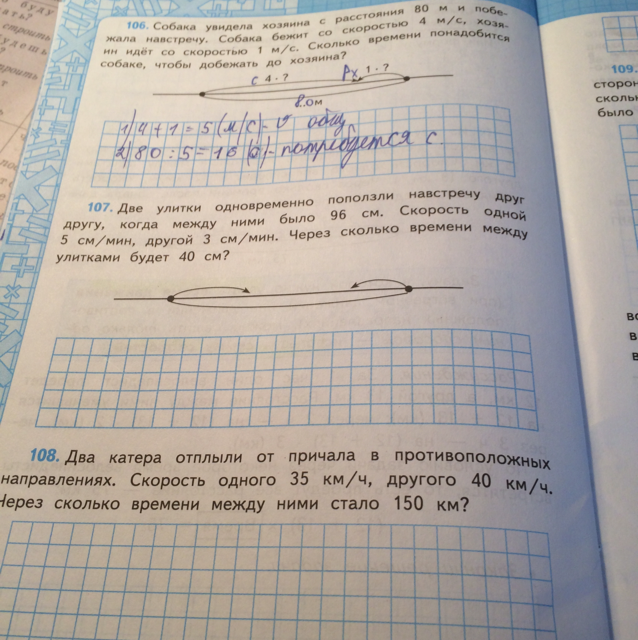 106. Собака увидела хозяина с расстояния 80 м и побе-
жала навстречу. Собака бежит со скоростью 4 м/с, хозя-
ин идёт со скоростью 1 м/с. Сколько времени понадобится
собаке, чтобы добежать до хозяина?
с 4 · ? 1 · ?
80м
1) 4+1=5 (м/с)- v общ
2) 80:5=16 (с)- потребуется с.
107. Две улитки одновременно поползли навстречу друг
другу, когда между ними было 96 см. Скорость одной
5 см/мин, другой 3 см/мин. Через сколько времени между
улитками будет 40 см?
108. Два катера отплыли от причала в противоположных
направлениях. Скорость одного 35 км/ч, другого 40 км/ч.
Через сколько времени между ними стало 150 км?
109.
сторон
скольк
было